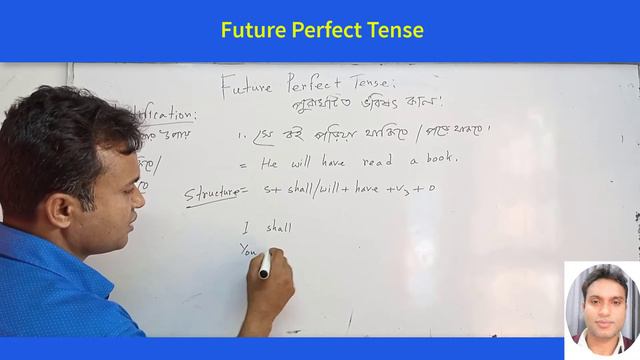 Future Perfect Tense
Future Perfect Tense:
পুরাঘটিত ভবিষ্যৎ কাল:
ification:
১. সে বই পড়িয়া থাকিবে / পড়ে থাকবে।
= He will have read a book.
Structure = S + shall/will + have + V3 + O
I shall
You